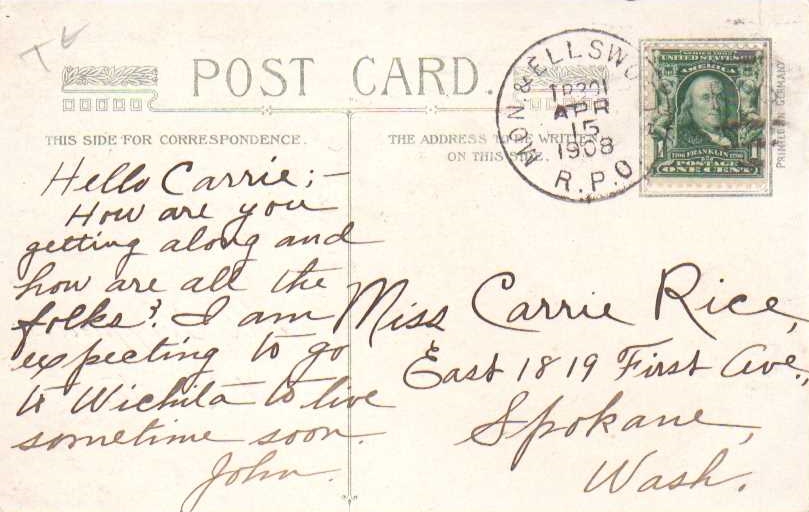 T L
POST CARD.
THIS SIDE FOR CORRESPONDENCE.
THE ADDRESS TO BE WRITTEN
ON THIS SIDE.
& ELLSWO
TR 301
APR
15
1908
R.P.O.
SERIES 1902
UNITED STATES OF
AMERICA
1706 FRANKLIN 1790
POSTAGE
1 ONE CENT 1
PRINTED IN GERMANY
Hello Carrie;-
How are you
getting along and
how are all the
folks? I am
expecting to go
to Wichita to live
sometime soon.
John.
Miss Carrie Rice,
East 1819 First Ave.,
Spokane,
Wash.